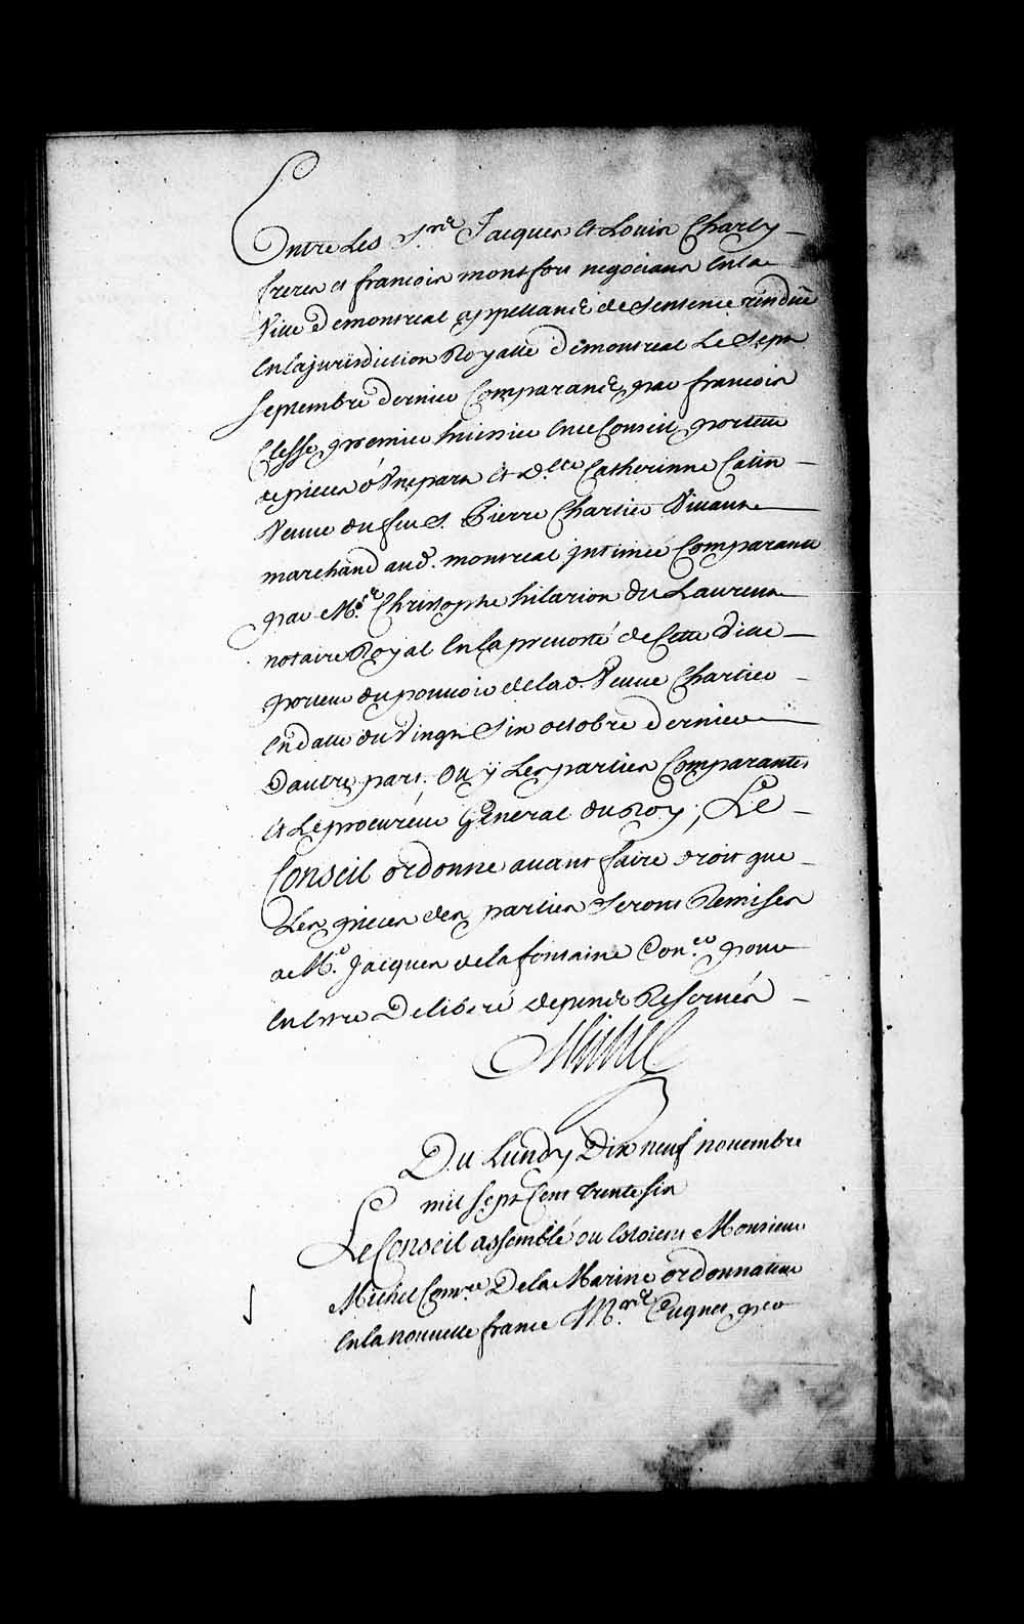 Entre Les Srs Jacques et Louis Charly
freres et francois montfort negocians en la
Ville demontreal appellans de sentence rendüe
en la jurisdiction Royalle demontreal Le sept
septembre dernier Comparans par francois
Clesse premier huissier en ce Conseil porteur
de pieces d'Une part Et Dlle Catherinne Catin
Veuve du feu s. Pierre Chartier Vivant
marchand aud. montreal intimée Comparante
par Me Christophe hilarion du Laurent
notaire Royal en la prevosté de Cette Ville
porteur du pouvoir de lad. Veuve Chartier
en datte du Vingt Six octobre dernier
D'autre part; Ouy Les parties Comparantes
et Le procureur General du Roy; Le
Conseil ordonne avant faire droit que
Les pieces des parties seront Remises
a Me. Jacques de la fontaine Coner. pour
en Estre Deliberé depens Reservés
Michel
Du Lundy Dix neuf novembre
mil sept Cent trente six
Le Conseil assemblé ou Estoient Monsieur
Michel Comre De la Marine ordonnateur
en la nouvelle france Mre Cugnet pr